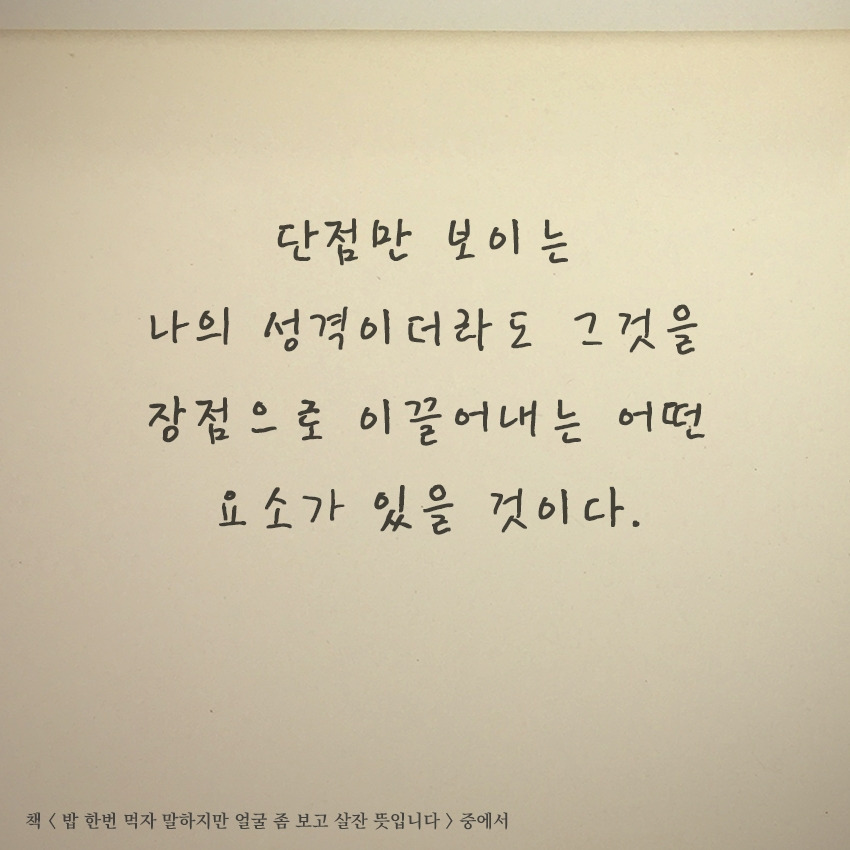 단점만 보이는
나의 성격이더라도 그것을
장점으로 이끌어내는 어떤
요소가 있을 것이다.
책 < 밥 한번 먹자 말하지만 얼굴 좀 보고 살잔 뜻입니다 > 중에서